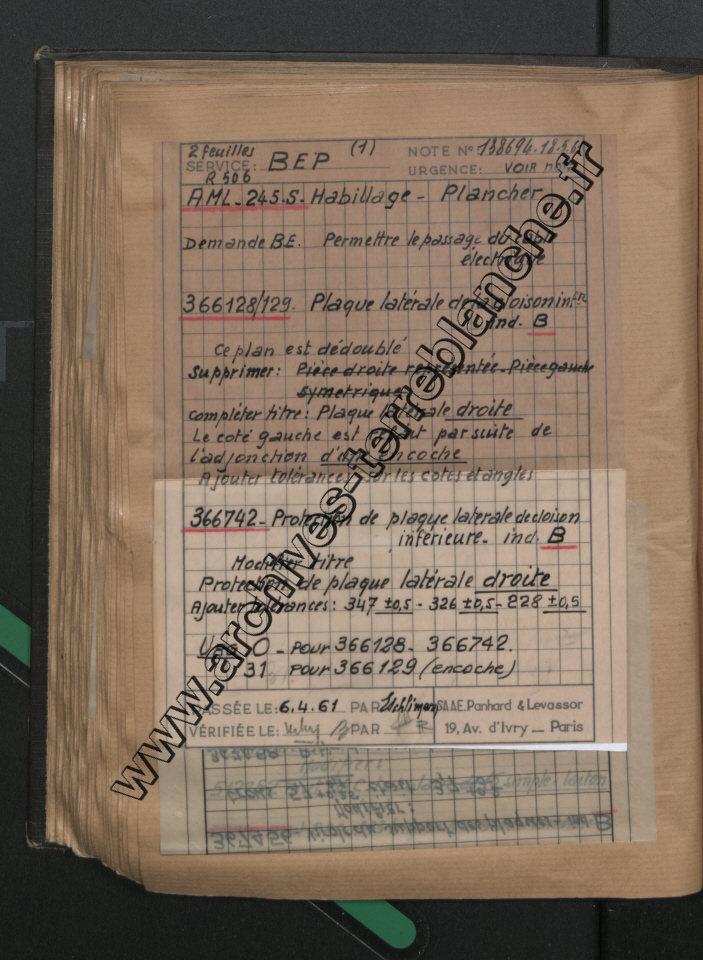 2 feuilles (1) NOTE N° 138694.18.5.61
SERVICE: BEP URGENCE: VOIR
R 506
AML-245.S. Habillage - Plancher
Demande B.E. Permettre le passage du
électrique
366128/129. Plaque latérale de la cloison infre
ind. B
Ce plan est dédoublé
Supprimer: Pièce droite représentée. Pièce gauche
symetrique
compléter titre: Plaque latérale droite
Le coté gauche est par suite de
l'adjonction d'une encoche
Ajouter tolérances sur les cotes et angles
366742 - Protection de plaque laterale de cloison
inférieure. ind. B
Modifier titre
Protection de plaque latérale droite
Ajouter tolérances: 347 ±0,5 - 326 ±0,5 - 228 ±0,5
0 - pour 366128 - 366742.
31 pour 366129 (encoche)
PASSÉE LE: 6.4.61 PAR S.A.A.E. Panhard & Levassor
VÉRIFIÉE LE: PAR 19, Av. d'Ivry — Paris
www.archives-terreblanche.fr